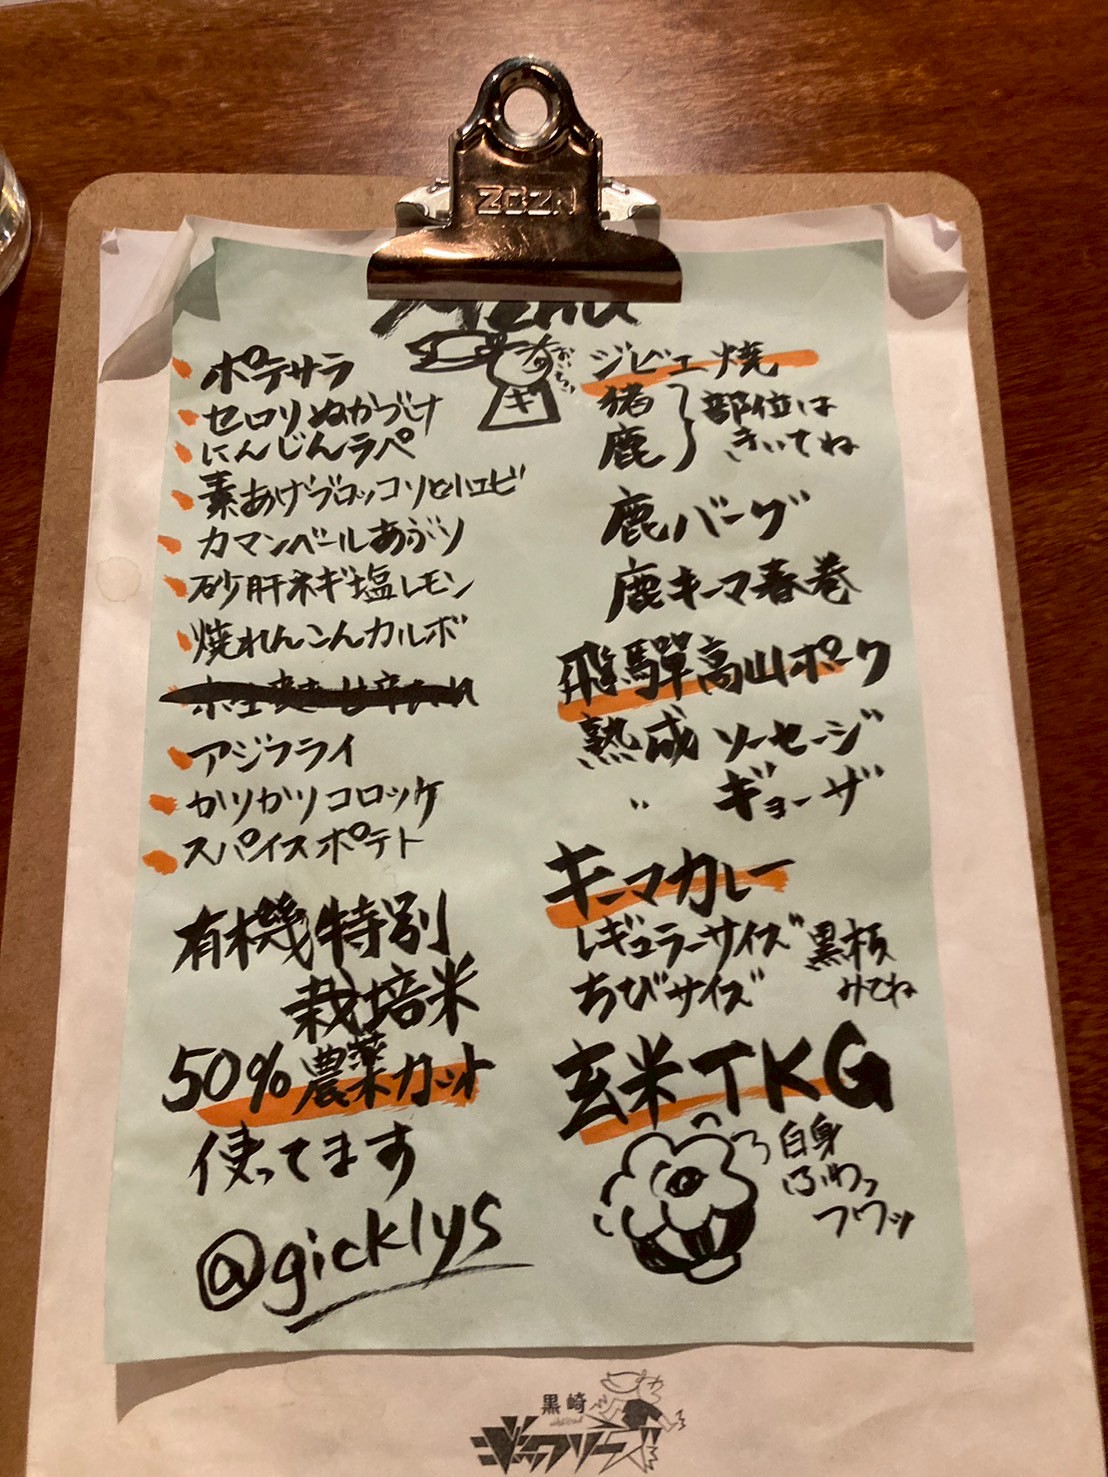 ZBZN
Menu
ポテサラ
セロリぬかづけ
にんじんラペ
素あげブロッコリと小エビ
カマンベールあぶり
砂肝ネギ塩レモン
焼れんこんカルボ
アジフライ
かりかりコロッケ
スパイスポテト
有機特別
栽培米
50%農薬カット
使ってます
@gicklys
ギ
ジビエ焼
猪
鹿
部位は
きいてね
鹿バーグ
鹿キーマ春巻
飛騨高山ポーク
熟成 ソーセージ
〃 ギョーザ
キーマカレー
レギュラーサイズ
ちびサイズ
黒板
みてね
玄米TKG
白身
ふわっ
フワッ
黒崎
ジックリーズ